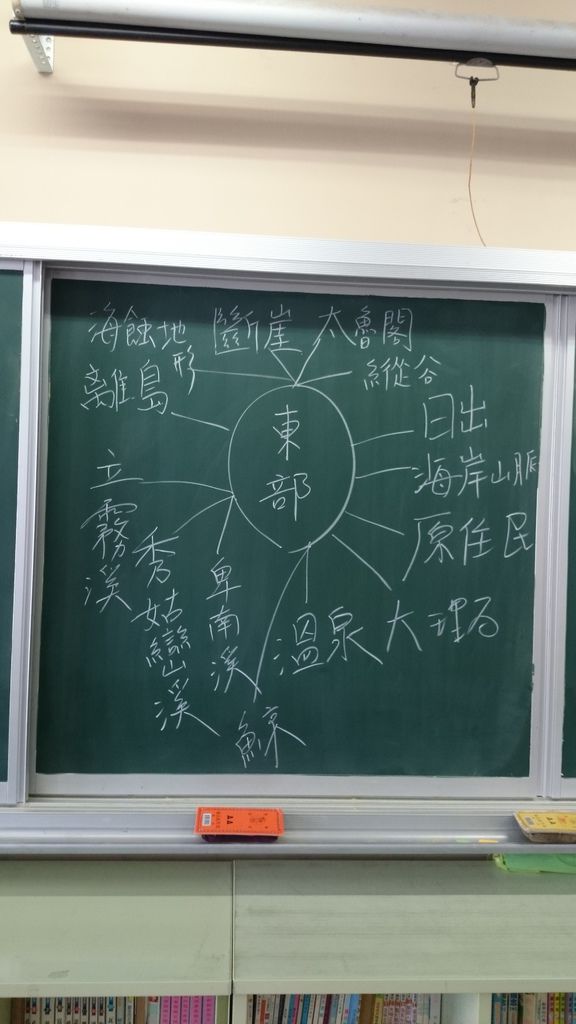 海蝕地形
斷崖
太魯閣
縱谷
離島
日出
東部
海岸山脈
立霧溪
原住民
秀姑巒溪
卑南溪
溫泉
大理石
鯨